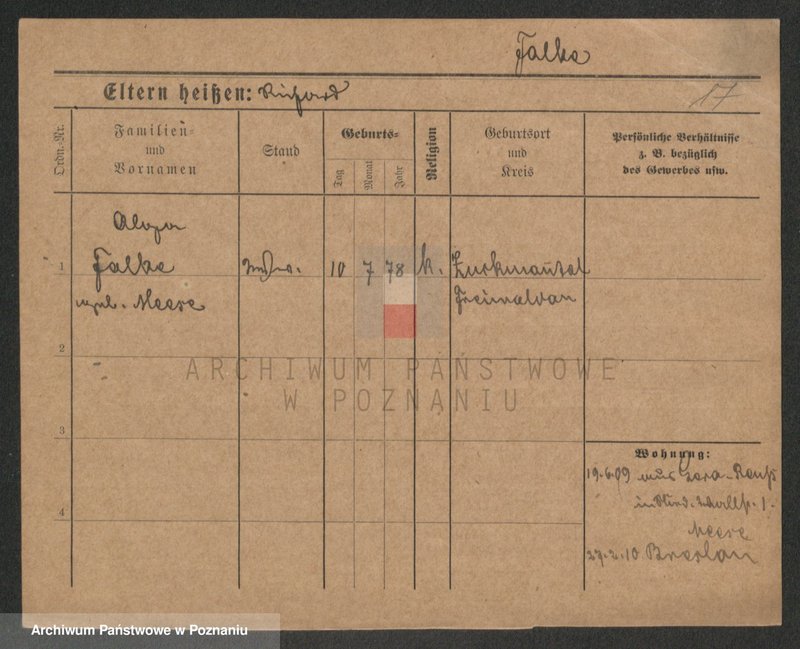 Falke
Eltern heißen: Richard
17
Ordn.-Nr.
Familien=
und
Vornamen
Stand
Geburts=
Tag
Monat
Jahr
Religion
Geburtsort
und
Kreis
Persönliche Verhältnisse
z. B. bezüglich
des Gewerbes usw.
1
Falke
Meese
10 7 78 k.
Zuckmantel
Freiwaldau
2
ARCHIWUM PAŃSTWOWE
W POZNANIU
3
Wohnung:
19.6.09 aus Gera-Reuß
4
Meese
27.2.10 Breslau
Archiwum Państwowe w Poznaniu